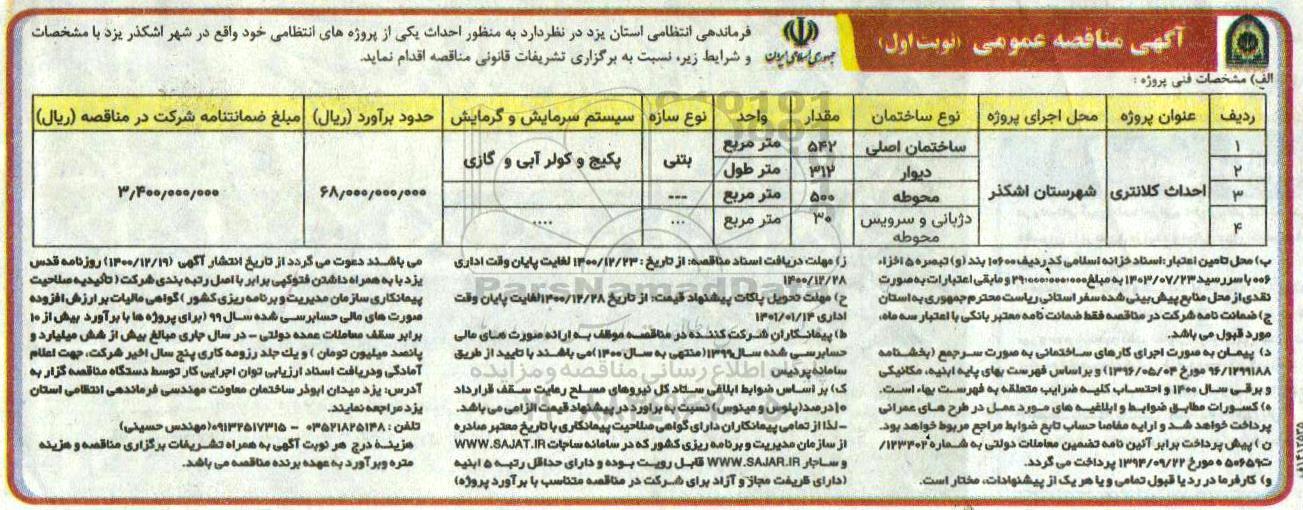 آگهی مناقصه عمومی (نوبت اول)
جمهوری اسلامی ایران
فرماندهی انتظامی استان یزد در نظردارد به منظور احداث یکی از پروژه های انتظامی خود واقع در شهر اشکذر یزد با مشخصات
و شرایط زیر، نسبت به برگزاری تشریفات قانونی مناقصه اقدام نماید.
الف) مشخصات فنی پروژه :
ردیف عنوان پروژه محل اجرای پروژه نوع ساختمان مقدار واحد نوع سازه سیستم سرمایش و گرمایش حدود برآورد (ریال) مبلغ ضمانتنامه شرکت در مناقصه (ریال)
۱ احداث کلانتری شهرستان اشکذر ساختمان اصلی ۵۴۲ متر مربع بتنی پکیج و کولر آبی و گازی ۶۸/۰۰۰/۰۰۰/۰۰۰ ۳/۴۰۰/۰۰۰/۰۰۰
۲ دیوار ۳۱۲ متر طول
۳ محوطه ۵۰۰ متر مربع ---
۴ دژبانی و سرویس محوطه ۳۰ متر مربع ... ....
ب) محل تامین اعتبار: اسناد خزانه اسلامی کد ردیف ۱۰۶۰۰ بند (و) تبصره ۵ اخزاء
۰۰۶ با سررسید ۱۴۰۳/۰۷/۲۳ به مبلغ ۲۹۰/۰۰۰/۰۰۰/۰۰۰ و مابقی اعتبارات به صورت
نقدی از محل منابع پیش بینی شده سفر استانی ریاست محترم جمهوری به استان
ج) ضمانت نامه شرکت در مناقصه فقط ضمانت نامه معتبر بانکی با اعتبار سه ماه،
مورد قبول می باشد.
د) پیمان به صورت اجرای کارهای ساختمانی به صورت سرجمع (بخشنامه
۹۶/۱۲۹۹۱۸۸ مورخ ۱۳۹۶/۰۵/۰۴) و براساس فهرست بهای پایه ابنیه، مکانیکی
و برقی سال ۱۴۰۰ و احتساب کلیه ضرایب متعلقه به فهرست بهاء است.
ه) کسورات مطابق ضوابط و ابلاغیه های مورد عمل در طرح های عمرانی
پرداخت خواهد شد و ارایه مفاصا حساب تابع ضوابط مراجع مربوط خواهد بود.
ن) پیش پرداخت برابر آئین نامه تضمین معاملات دولتی به شماره ۱۲۳۴۰۲/
ت۵۰۶۵۹ه مورخ ۱۳۹۴/۰۹/۲۲ پرداخت می گردد.
و) کارفرما در رد یا قبول تمامی و یا هر یک از پیشنهادات، مختار است.
ز) مهلت دریافت اسناد مناقصه: از تاریخ : ۱۴۰۰/۱۲/۲۳ لغایت پایان وقت اداری
۱۴۰۰/۱۲/۲۸
ح) مهلت تحویل پاکات پیشنهاد قیمت: از تاریخ ۱۴۰۰/۱۲/۲۸ لغایت پایان وقت
اداری ۱۴۰۱/۰۱/۱۴
ط) پیمانکاران شرکت کننده در مناقصه موظف به ارائه صورت های مالی
حسابرسی شده سال۱۳۹۹ (منتهی به سال ۱۴۰۰) می باشند با تایید از طریق
سامانه پردیس
ک) بر اساس ضوابط ابلاغی ستاد کل نیروهای مسلح رعایت سقف قرارداد
۱۰ درصد (پلوس و مینوس) نسبت به برآورد در پیشنهاد قیمت الزامی می باشد.
-لذا از تمامی پیمانکاران دارای گواهی صلاحیت پیمانکاری با تاریخ معتبر صادره
از سازمان مدیریت و برنامه ریزی کشور که در سامانه ساجات WWW.SAJAT.IR
و ساجار WWW.SAJAR.IR قابل رویت بوده و دارای حداقل رتبه ۵ ابنیه
(دارای ظریفت مجاز و آزاد برای شرکت در مناقصه متناسب با برآورد پروژه)
می باشند دعوت می گردد از تاریخ انتشار آگهی (۱۴۰۰/۱۲/۱۹) روزنامه قدس
یزد با به همراه داشتن فتوکپی برابر با اصل رتبه بندی شرکت ( تأئیدیه صلاحیت
پیمانکاری سازمان مدیریت و برنامه ریزی کشور ) گواهی مالیات بر ارزش افزوده
صورت های مالی حسابرسی شده سال ۹۹ (برای پروژه ها با برآورد بیش از ۱۰
برابر سقف معاملات عمده دولتی – در سال جاری مبالغ بیش از شش میلیارد و
پانصد میلیون تومان ) و یک جلد رزومه کاری پنج سال اخیر شرکت، جهت اعلام
آمادگی و دریافت اسناد ارزیابی توان اجرایی کار توسط دستگاه مناقصه گزار به
آدرس: یزد میدان ابوذر ساختمان معاونت مهندسی فرماندهی انتظامی استان
یزد مراجعه نمایند.
تلفن : ۰۳۵۲۱۸۲۵۱۴۸ – ۰۹۱۳۲۵۱۷۳۱۵ (مهندس حسینی)
هزینه درج هر نوبت آگهی به همراه تشریفات برگزاری مناقصه و هزینه
متره وبرآورد به عهده برنده مناقصه می باشد.
ParsNamadData